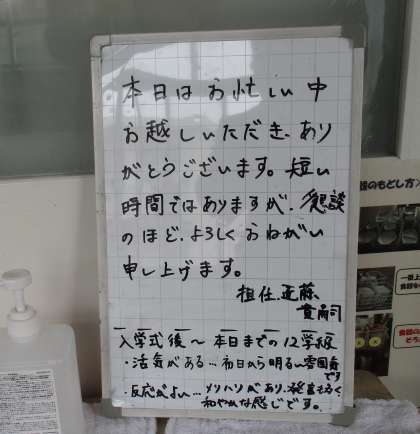 本日はお忙しい中
お越しいただき、あり
がとうございます。短い
時間ではありますが、懇談
のほど、よろしくおねがい
申し上げます。
担任 近藤
入学式後～本日までの12学級
・活気がある…初日から明るい雰囲気
です
・反応がよい…メリハリがあり、発言も多く
和やかな感じです。
のもどし方